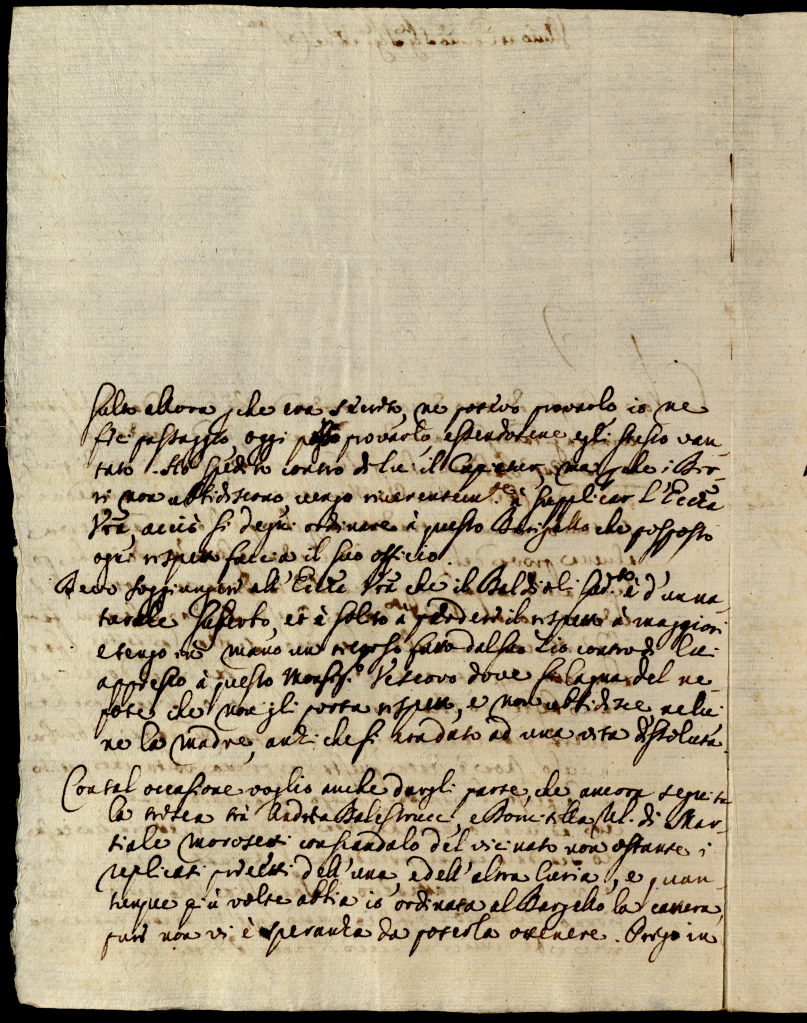 allora, che era secreto, ne potevo provarlo io ne
feci passaggio, oggi posso provarlo essendosene egli stesso van-
tato. Ho spedito contro di lui il Capiatur, ma perche i Bir-
ri non ubbidiscono vengo riverentem.te à supplicar l'Ecc.za
V.ra acciò si degni ordinare à questo Barigello che posposto
ogni rispetto faccia il suo officio.
Devo soggiungere all'Ecc.za V.ra che il Baldi è d'un na-
turale et è solito à perdere il rispetto à maggiori
e tengo in mano un fatto dal suo Zio contro di lui
appresso à questo Monsig.r Vescovo dove si lagna del ne-
pote che non gli porta rispetto, e non ubbidisce ne lui
ne la madre, anzi che si è dato ad una vita dissoluta
Con tal occasione voglio anche dargli parte, che ancora seguita
la trà Andrea Balestrucci, e Domitilla M. di Mar-
tiale Morosetti con scandalo del vicinato non ostante i
replicati precetti dell'una e dell'altra Curia, e quan-
tunque più volte abbia io ordinata al Bargello la cattura,
pure non vi è speranza da poterla ottenere. Prego in